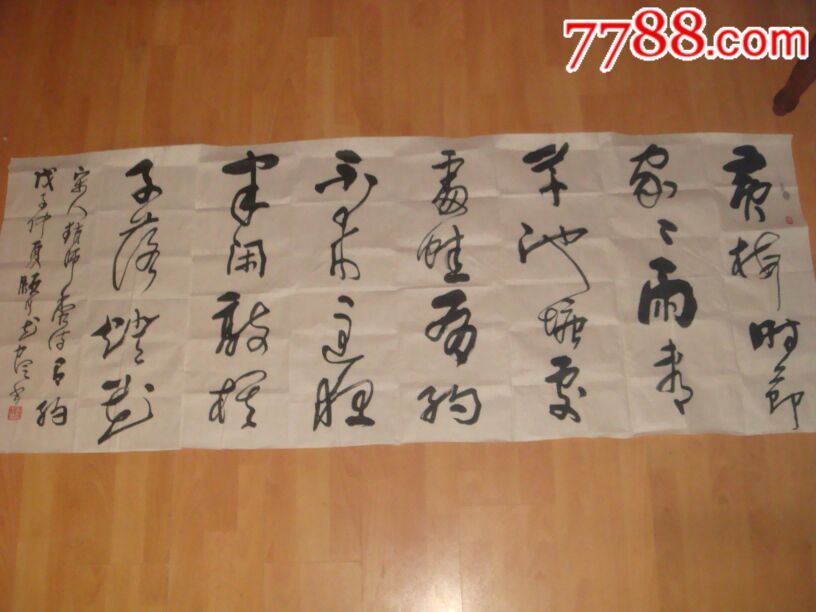 7788.com
黄梅时節
家〻雨青
草池塘处
處蛙有约
不来过夜
半闲敲棋
子落燈花
宋人赵师秀诗有约
戊子仲夏 书